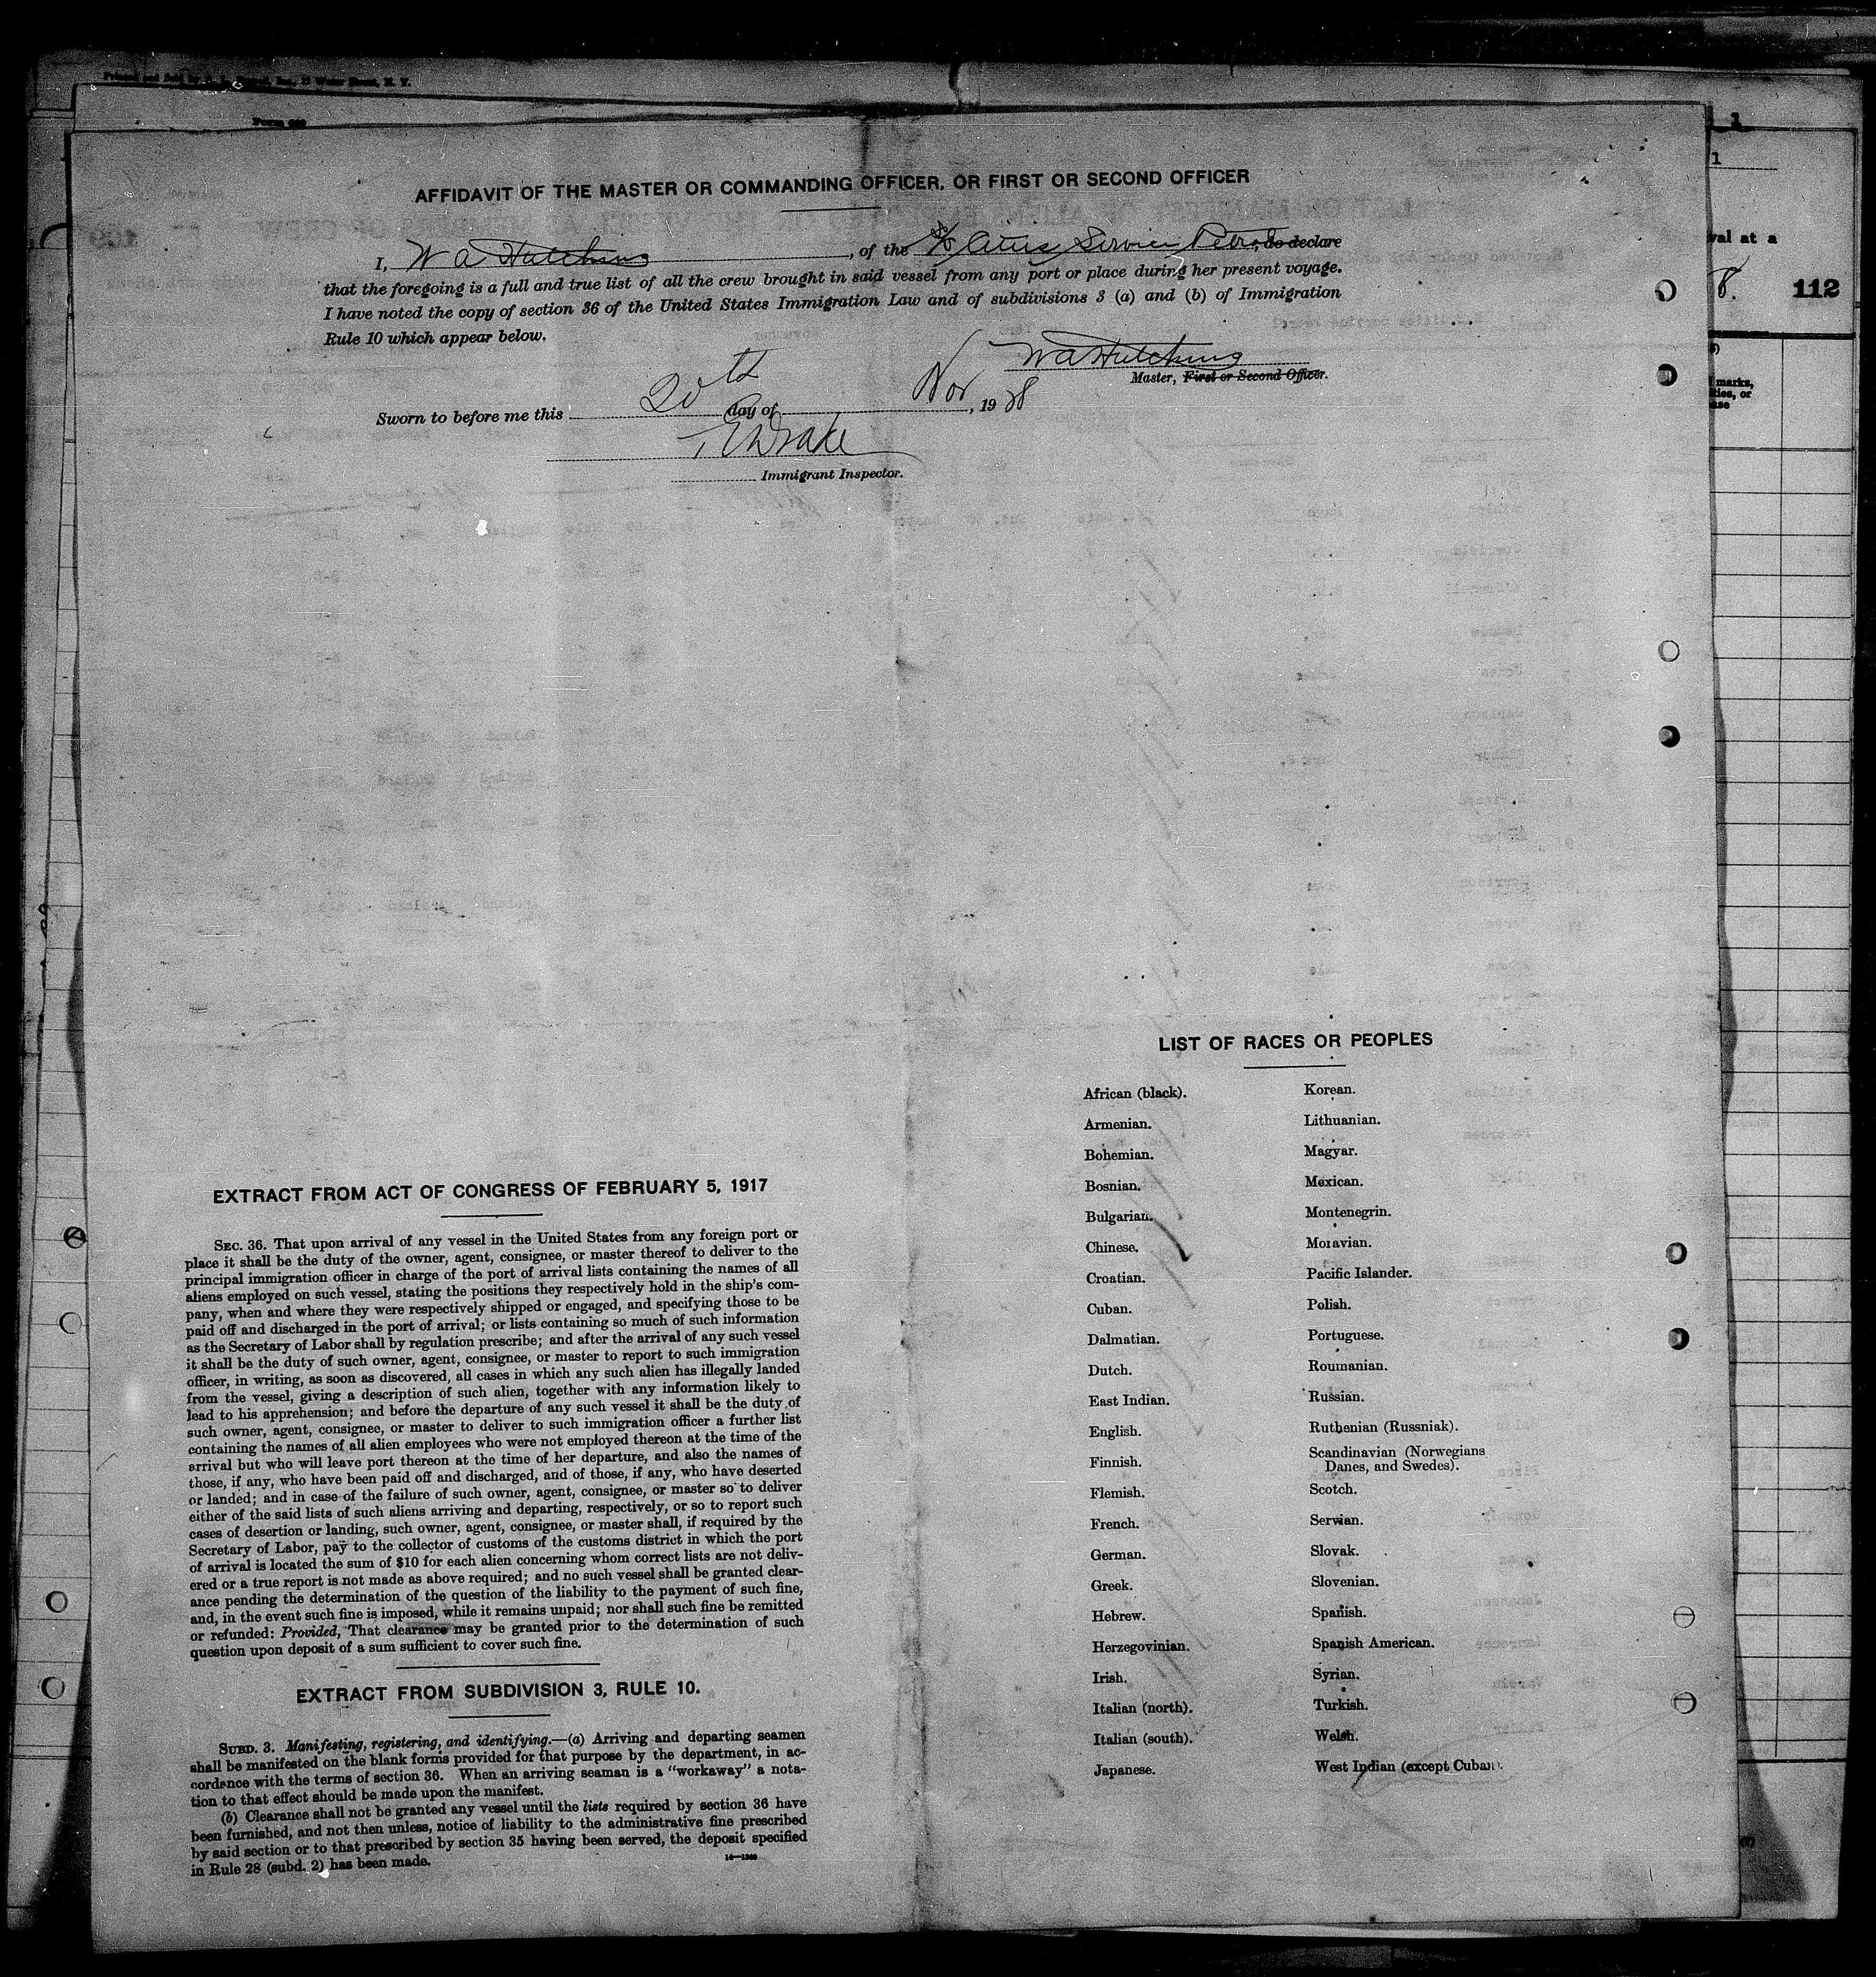 Form 689
1
1
val at a
8.
112
marks,
ties, or
ase
AFFIDAVIT OF THE MASTER OR COMMANDING OFFICER, OR FIRST OR SECOND OFFICER
I, W A Hutchins, of the S/S Cities Service Petrol, do declare
that the foregoing is a full and true list of all the crew brought in said vessel from any port or place during her present voyage.
I have noted the copy of section 36 of the United States Immigration Law and of subdivisions 3 (a) and (b) of Immigration
Rule 10 which appear below.
W A Hutchins
Master, First or Second Officer.
Sworn to before me this 20th day of Nov, 1928
Drake
Immigrant Inspector.
EXTRACT FROM ACT OF CONGRESS OF FEBRUARY 5, 1917
SEC. 36. That upon arrival of any vessel in the United States from any foreign port or
place it shall be the duty of the owner, agent, consignee, or master thereof to deliver to the
principal immigration officer in charge of the port of arrival lists containing the names of all
aliens employed on such vessel, stating the positions they respectively hold in the ship's com-
pany, when and where they were respectively shipped or engaged, and specifying those to be
paid off and discharged in the port of arrival; or lists containing so much of such information
as the Secretary of Labor shall by regulation prescribe; and after the arrival of any such vessel
it shall be the duty of such owner, agent, consignee, or master to report to such immigration
officer, in writing, as soon as discovered, all cases in which any such alien has illegally landed
from the vessel, giving a description of such alien, together with any information likely to
lead to his apprehension; and before the departure of any such vessel it shall be the duty of
such owner, agent, consignee, or master to deliver to such immigration officer a further list
containing the names of all alien employees who were not employed thereon at the time of the
arrival but who will leave port thereon at the time of her departure, and also the names of
those, if any, who have been paid off and discharged, and of those, if any, who have deserted
or landed; and in case of the failure of such owner, agent, consignee, or master so to deliver
either of the said lists of such aliens arriving and departing, respectively, or so to report such
cases of desertion or landing, such owner, agent, consignee, or master shall, if required by the
Secretary of Labor, pay to the collector of customs of the customs district in which the port
of arrival is located the sum of $10 for each alien concerning whom correct lists are not deliv-
ered or a true report is not made as above required; and no such vessel shall be granted clear-
ance pending the determination of the question of the liability to the payment of such fine,
and, in the event such fine is imposed, while it remains unpaid; nor shall such fine be remitted
or refunded: Provided, That clearance may be granted prior to the determination of such
question upon deposit of a sum sufficient to cover such fine.
EXTRACT FROM SUBDIVISION 3, RULE 10.
SUBD. 3. Manifesting, registering, and identifying.—(a) Arriving and departing seamen
shall be manifested on the blank forms provided for that purpose by the department, in ac-
cordance with the terms of section 36. When an arriving seaman is a "workaway" a nota-
tion to that effect should be made upon the manifest.
(b) Clearance shall not be granted any vessel until the lists required by section 36 have
been furnished, and not then unless, notice of liability to the administrative fine prescribed
by said section or to that prescribed by section 35 having been served, the deposit specified
in Rule 28 (subd. 2) has been made.
LIST OF RACES OR PEOPLES
African (black).
Armenian.
Bohemian.
Bosnian.
Bulgarian.
Chinese.
Croatian.
Cuban.
Dalmatian.
Dutch.
East Indian.
English.
Finnish.
Flemish.
French.
German.
Greek.
Hebrew.
Herzegovinian.
Irish.
Italian (north).
Italian (south).
Japanese.
Korean.
Lithuanian.
Magyar.
Mexican.
Montenegrin.
Moravian.
Pacific Islander.
Polish.
Portuguese.
Roumanian.
Russian.
Ruthenian (Russniak).
Scandinavian (Norwegians
Danes, and Swedes).
Scotch.
Servian.
Slovak.
Slovenian.
Spanish.
Spanish American.
Syrian.
Turkish.
Welsh.
West Indian (except Cuban).